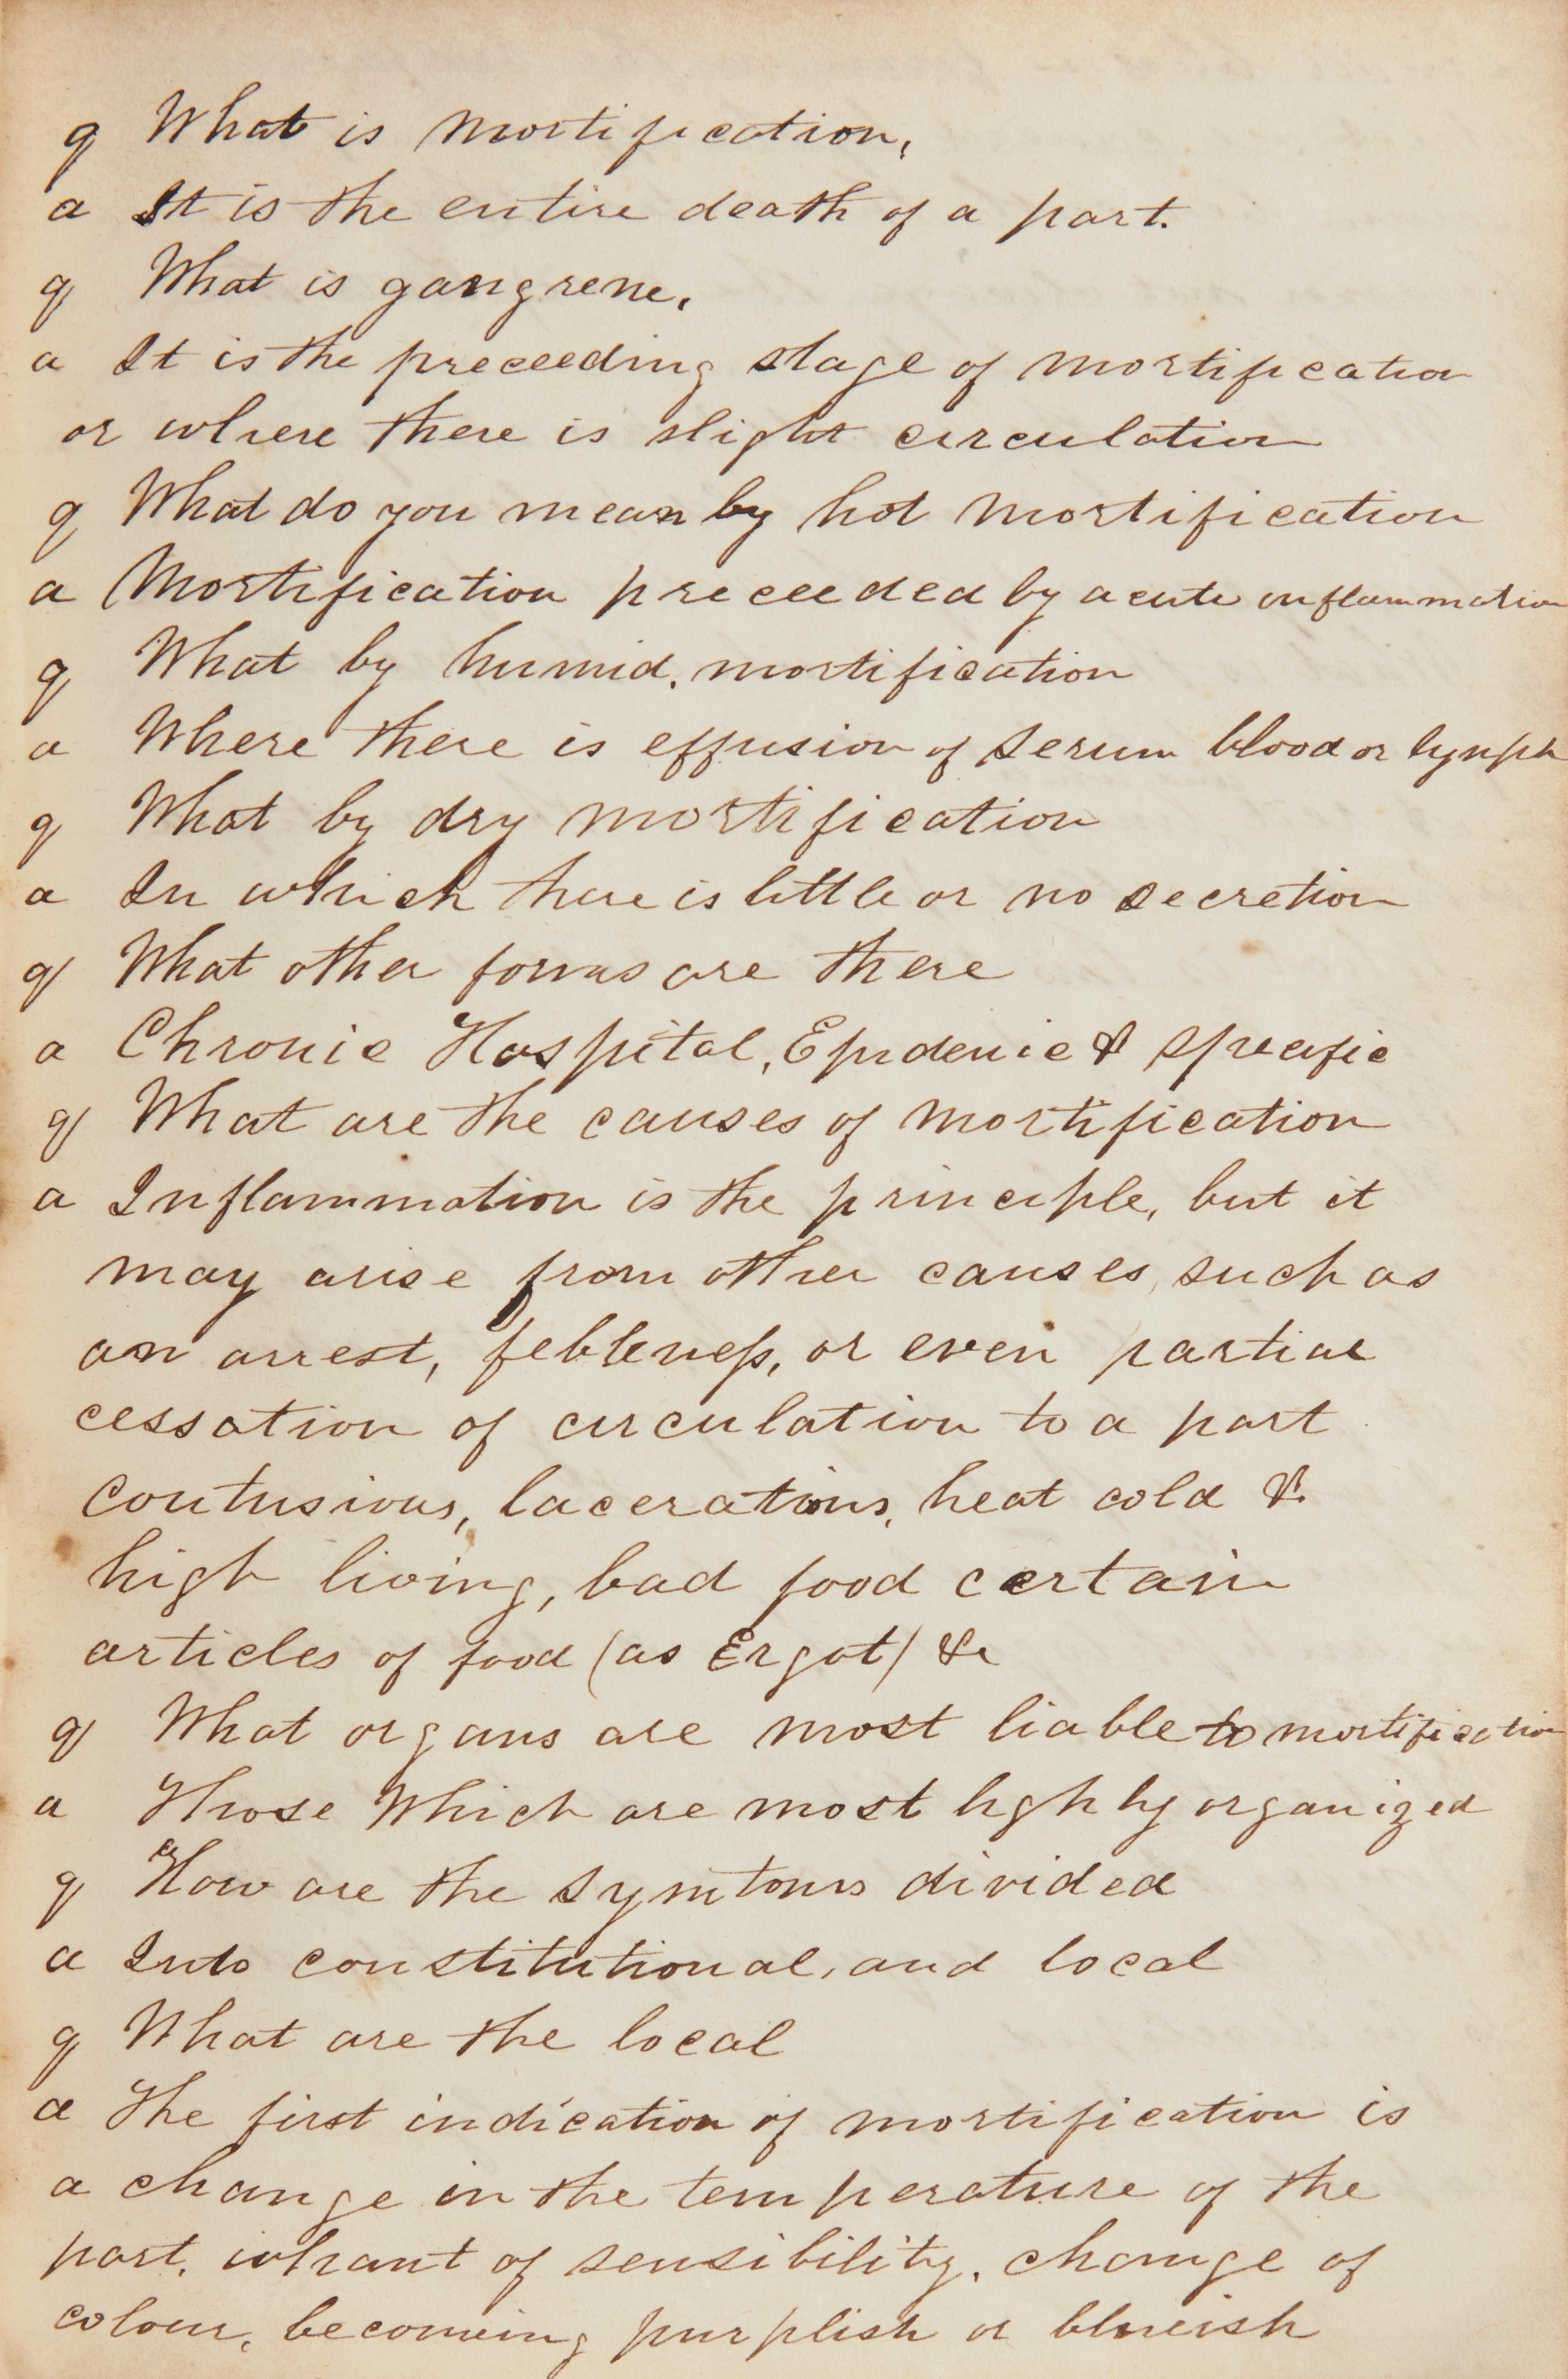 q What is mortification,
a It is the entire death of a part.
q What is gangrene,
a It is the preceeding stage of mortification
or where there is slight circulation
q What do you mean by hot mortification
a Mortification preceeded by acute inflammation
q What by humid. mortification
a Where there is effusion of serum blood or lymph
q What by dry mortification
a In which there is little or no secretion
q What other forms are there
a Chronic Hospital, Epidemic & specific
q What are the causes of mortification
a Inflammation is the principle, but it
may arise from other causes, such as
an arrest, febleness, or even partial
cessation of circulation to a part
contusions, lacerations, heat cold &.
high living, bad food certain
articles of food (as Ergot) &c
q What organs are most liable to mortification
a Those Which are most highly organized
q How are the symtoms divided
a Into constitutional, and local
q What are the local
a The first indication of mortification is
a change in the temperature of the
part. whant of sensibility, change of
colour, becomeing purplish or blueish